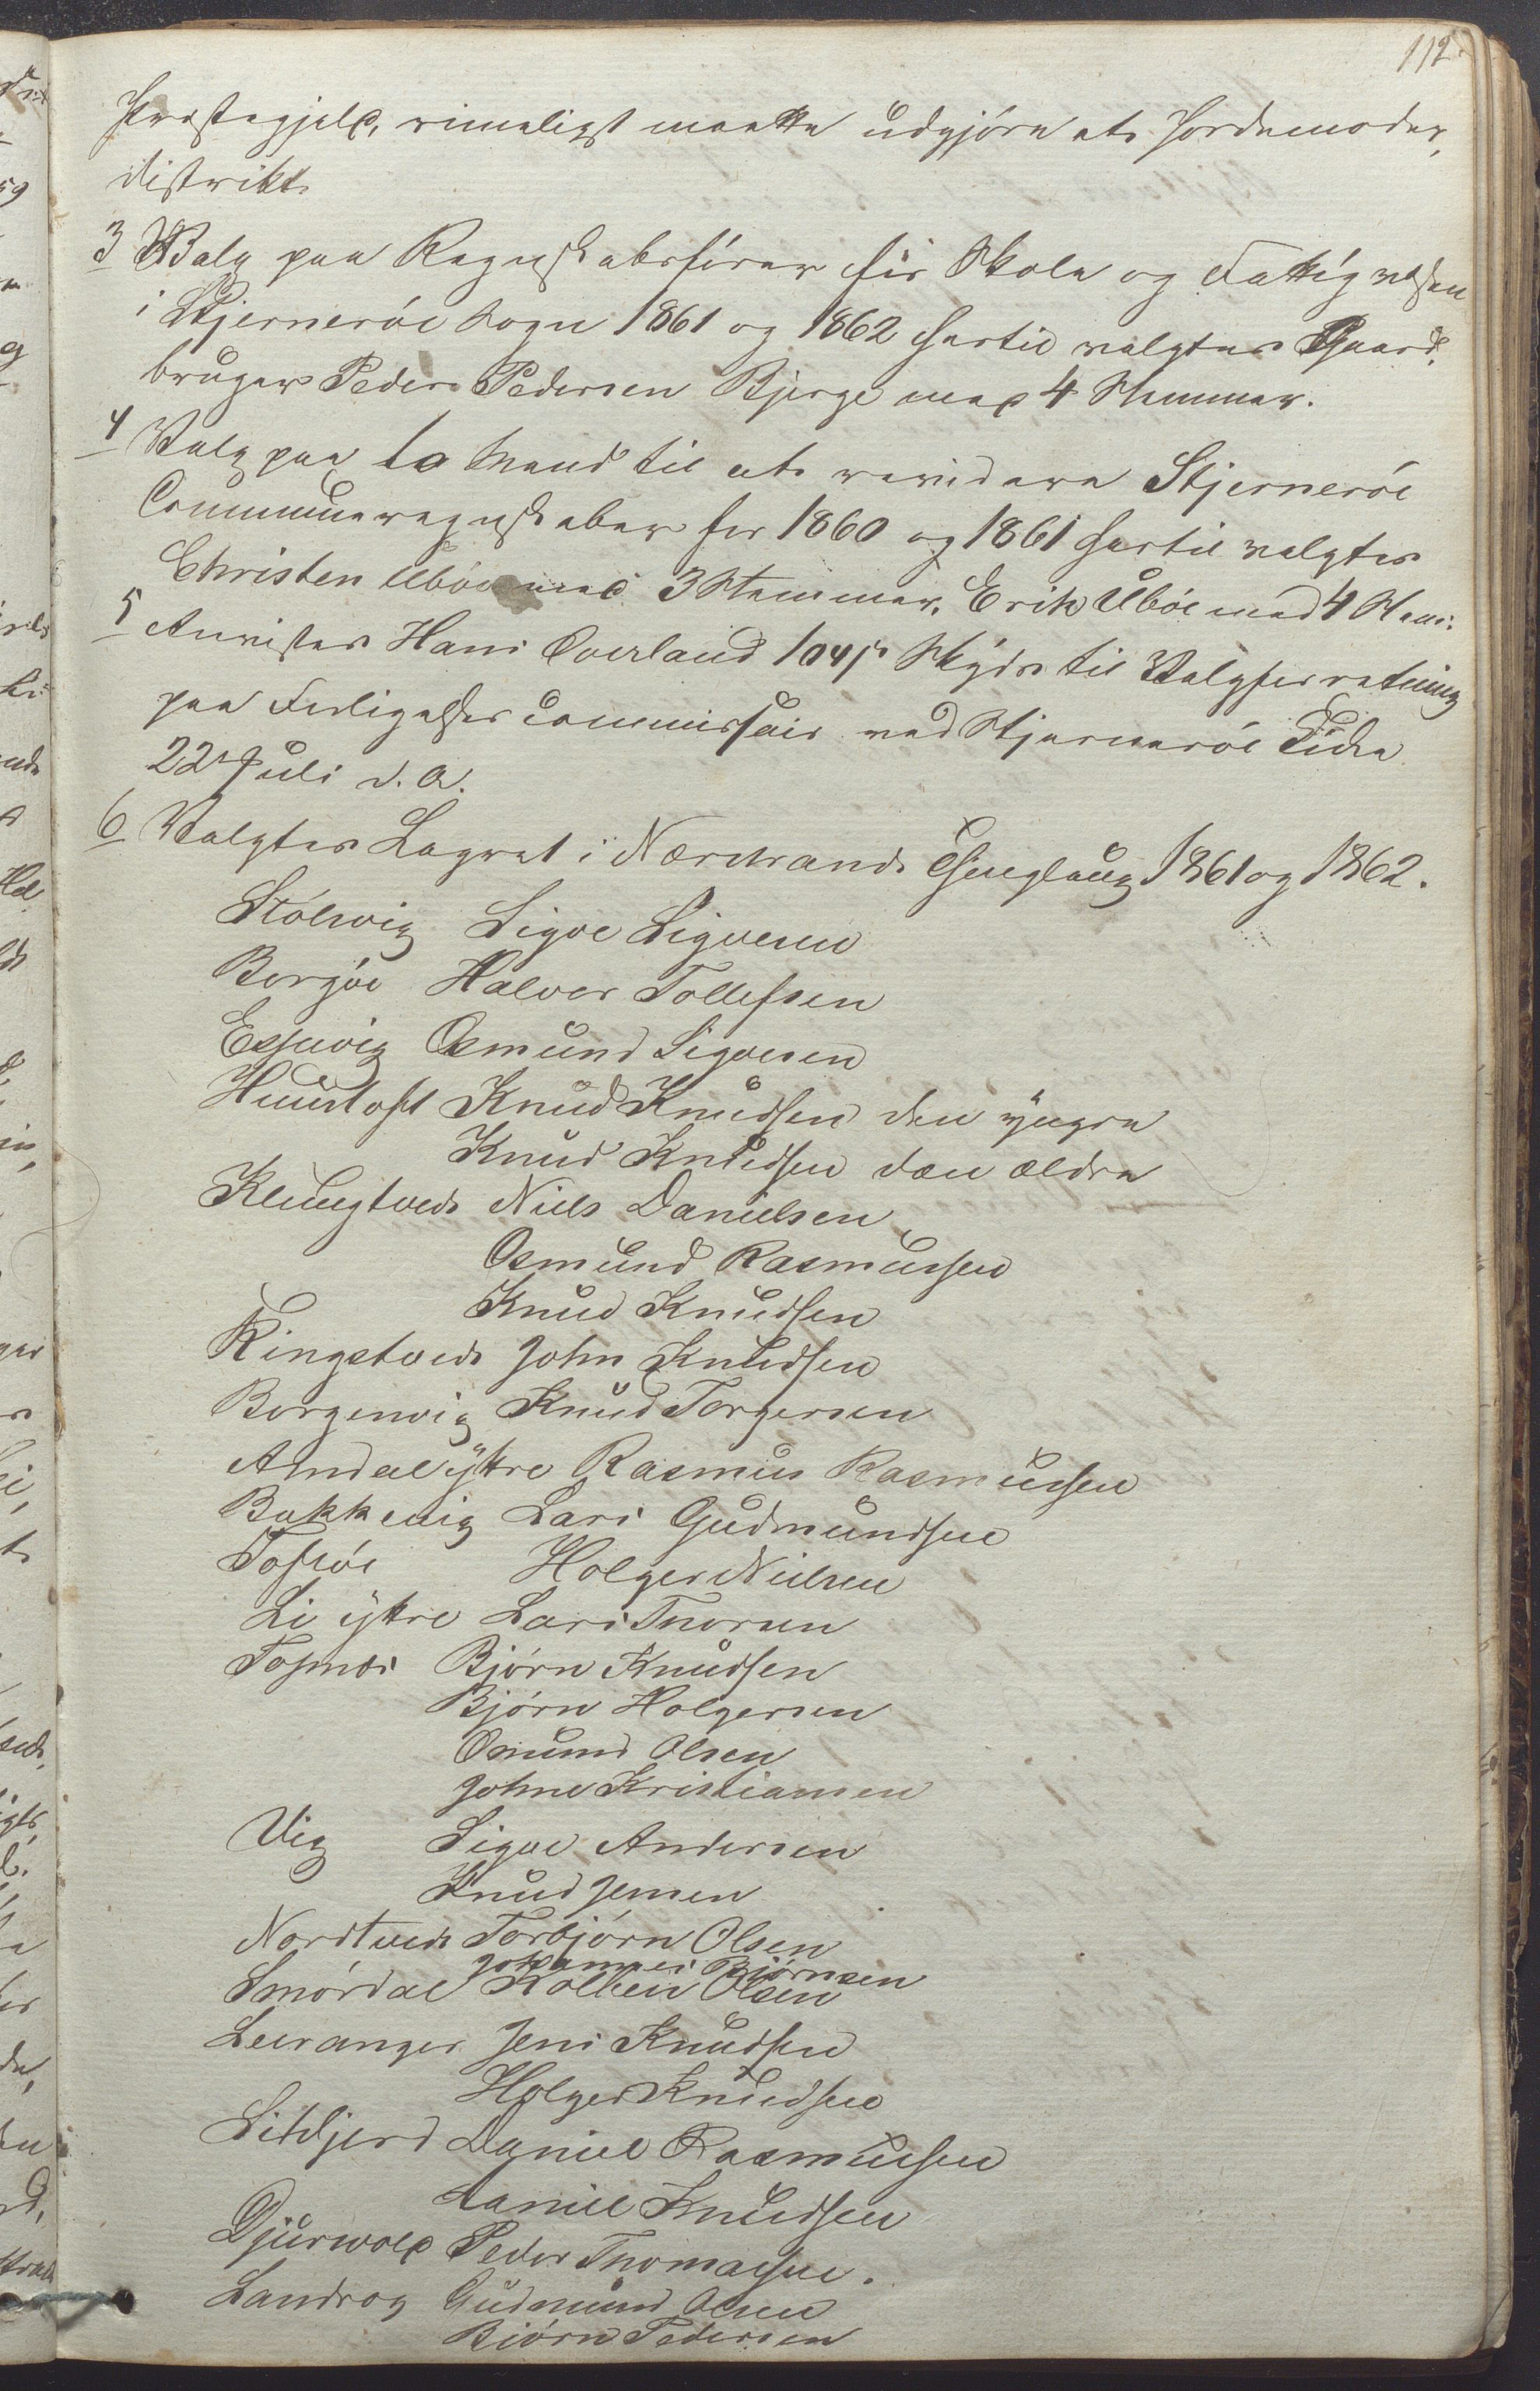 112.
Præstegjeld, rimeligst maatte udgjøre et Jordemoder,
distrikt.
3 Valg paa Regnskabsfører for Skole og Fattigvæsen
i Stjernerøe Sogn 1861 og 1862 hertil valgtes Gaard,
bruger Peder Pedersen Bjerge med 4 Stemmer.
4 Valg paa to Mænd til at revidere Stjernerøe
Communeregnskaber for 1860 og 1861 hertil valgtes
Christen Ubøe med 3 Stemmer, Erik Ubøe med 4 Stem:
5 Anvistes Hans Overland Skyds til Valgforretning
paa Forligelsescommissair ved Stjernerøe Kirke
22 Juli d. A.
6 Valgtes Lagret i Nærstrands Thinglaug 1861 og 1862.
Stølsvig Sigve Sigvesen
Borgøe Halvor Tollefsen
Espevig Osmund Sigvesen
Huustoft Knud Knudsen den yngre
Knud Knudsen den ældre
Klungtvedt Niels Danielsen
Osmund Rasmussen
Knud Knudsen
Ringstvedt John Knudsen
Borgenvig Knud Torgersen
Amdal yttre Rasmus Rasmussen
Bukkevig Lars Gudmundsen
Toftøe Holger Nielsen
Li yttre Lars Thorsen
Topnæs Bjørn Knudsen
Bjørn Holgersen
Osmund Olsen
Johne Kristiansen
Vig Sigve Andersen
Knud Jensen
Nordtvedt Torbjørn Olsen
Johannes Bjørnsen
Smørdal Kolben Olsen
Leeranger Jens Knudsen
Holger Knudsen
Litlfjerd Daniel Rasmussen
Daniel Knudsen
Djursvold Peder Thomassen.
Landrog Gudmund Olsen
Bjørn Pedersen